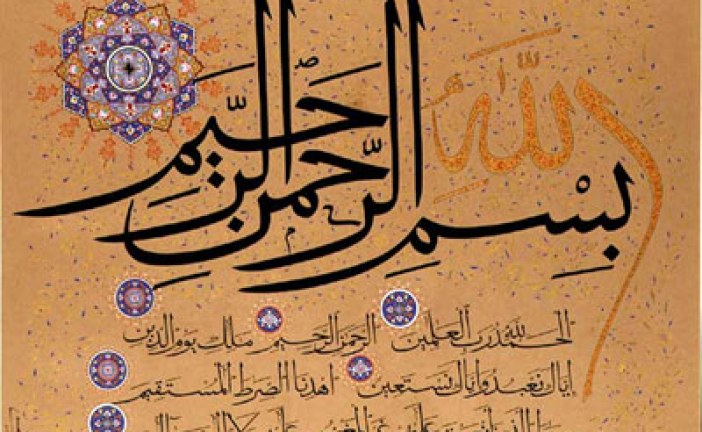 بِسْمِ اللّٰه الرَّحمنِ الرَّحِيمِ
الحمد لله رب العلمين الرحمن الرحيم ملك يوم الدين
اياك نعبد واياك نستعين اهدنا الصرط المستقيم